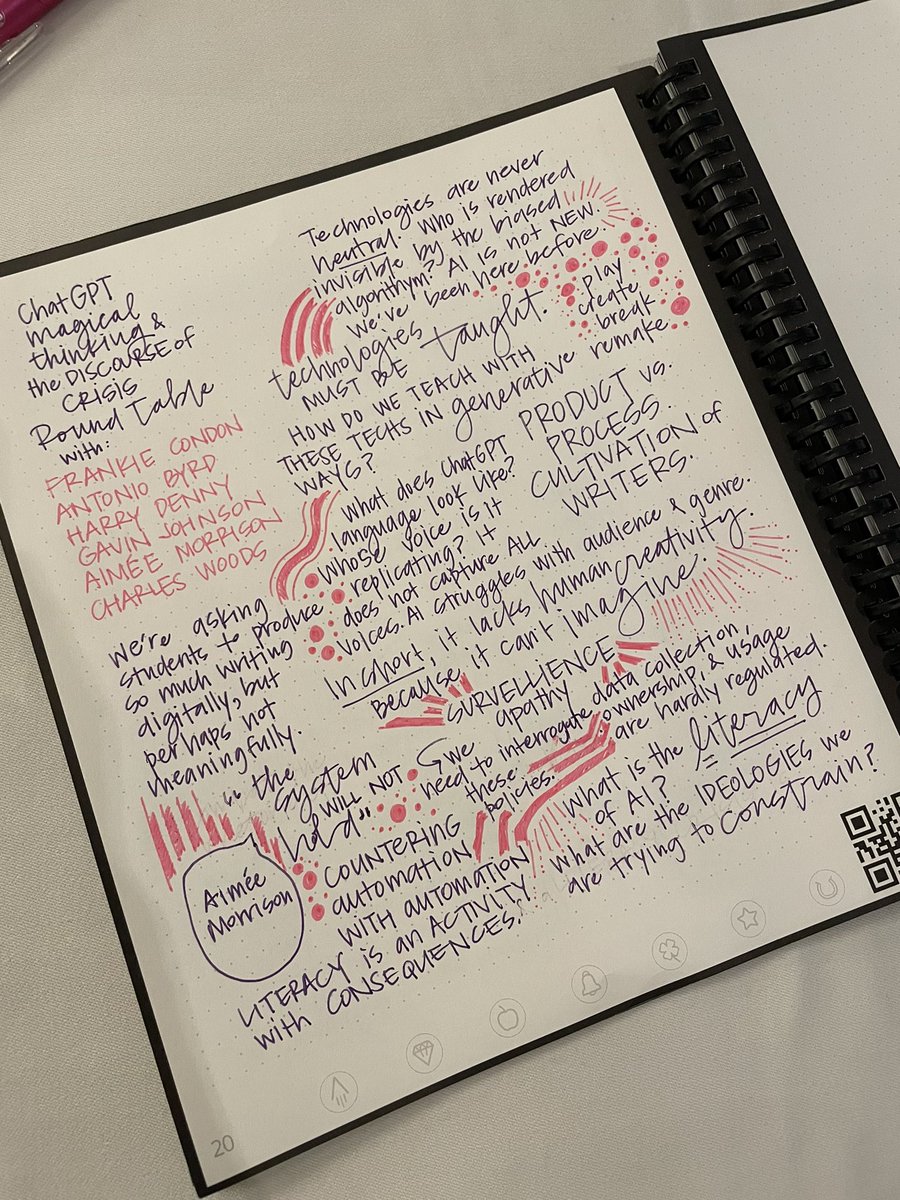 ChatGPT
magical
thinking &
the DISCOURSE of
CRISIS
Round Table
with:
FRANKIE CONDON
ANTONIO BYRD
HARRY DENNY
GAVIN JOHNSON
AIMÉE MORRISON
CHARLES WOODS
We're asking
students to produce
so much writing
digitally, but
perhaps not
meaningfully.
"the
system
WILL NOT
hold"
Aimée
Morrison
Technologies are never
neutral. Who is rendered
invisible by the biased
algorithym? AI is not NEW.
We've been here before.
technologies
MUST BE taught.
play
create
break
remake
HOW DO WE TEACH WITH
THESE TECHS IN generative
WAYS?
PRODUCT vs.
PROCESS.
CULTIVATION of
WRITERS.
What does ChatGPT
language look like?
Whose voice is it
replicating? It
does not capture ALL
voices. AI struggles with audience & genre.
In short, it lacks human creativity
because it can't imagine.
SURVELLIENCE
apathy
we
need to interrogate data collection,
these ownership, & usage
policies. are hardly regulated.
COUNTERING
automation
WITH AUTOMATION
What is the literacy
of AI?
What are the IDEOLOGIES we
are trying to constrain?
LITERACY is an ACTIVITY
with CONSEQUENCES.
20